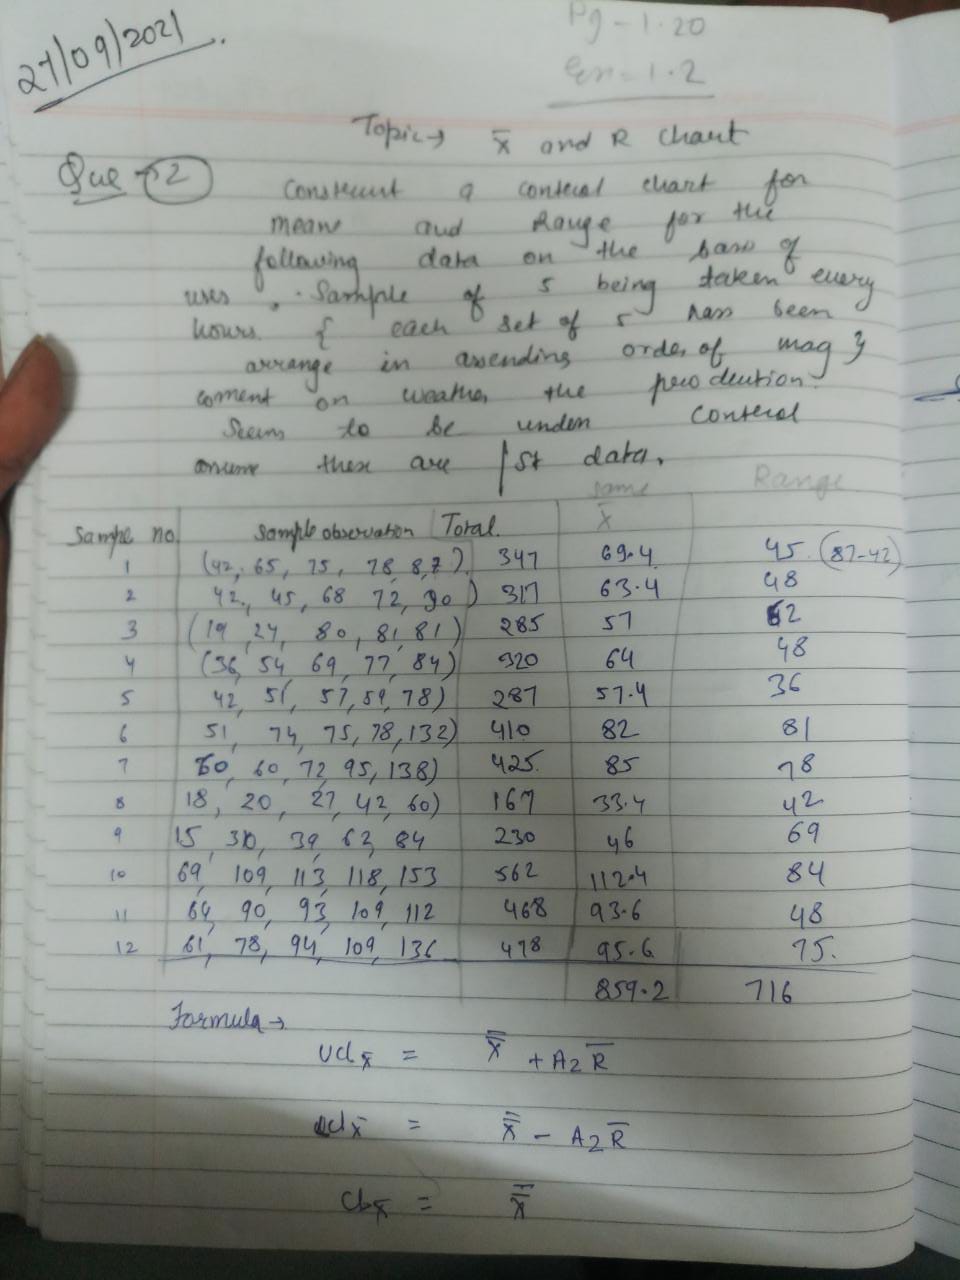 27/09/2021
Pg - 1.20
Ex - 1.2
Topic → x̄ and R chart
Que → 2 Construct a control chart for
mean and Range for the
following data on the basis of
uses. Sample of 5 being taken every
hours. { each set of 5 has been
arrange in assending order of mag }
coment on weather the production
seems to be under control
assume these are 1st data.
same Range
Sample no. Sample observation Total. x̄
1 (42, 65, 75, 78, 87) 347 69.4 45 (87-42)
2 42, 45, 68 72, 90) 317 63.4 48
3 (19, 24, 80, 81, 81) 285 57 62
4 (36, 54, 69, 77, 84) 320 64 48
5 42, 51, 57, 59, 78) 287 57.4 36
6 51, 74, 75, 78, 132) 410 82 81
7 60, 60, 72, 95, 138) 425 85 78
8 18, 20, 27, 42, 60) 167 33.4 42
9 15, 30, 39, 62, 84 230 46 69
10 69, 109, 113, 118, 153 562 112.4 84
11 64, 90, 93, 109, 112 468 93.6 48
12 61, 78, 94, 109, 136 478 95.6 75.
859.2 716
Formula →
UCL x̄ = x̿ + A₂ R̄
LCL x̄ = x̿ - A₂ R̄
CL x̄ = x̿